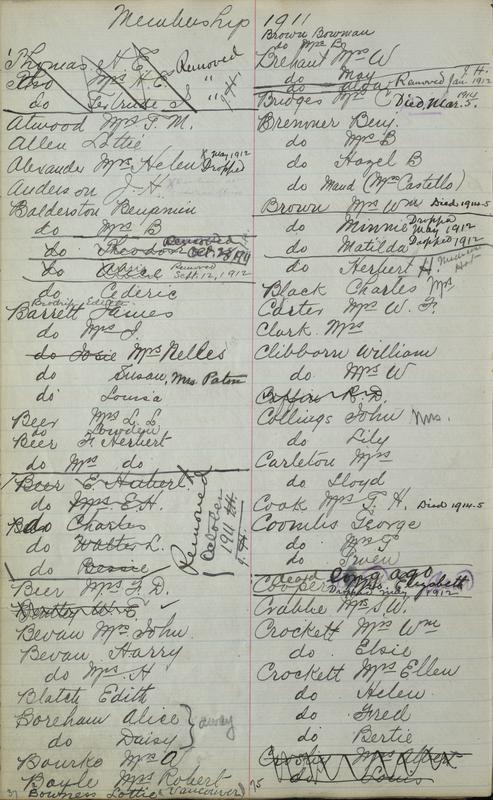 Membership 1911
Thomas H. E. Removed
Also Mrs H. E. "
do Gertrude S " J.H.
Atwood Mrs F. M.
Allen Lottie
Alexander Mrs Helen Dropped May 1912
Anderson J. H.
Balderston Benjamin
do Mrs B
do Theodore Removed Oct 28 1911
do Removed Sept. 12, 1912
do Cederic
Brodrib Edith
Barrett James
do Mrs J.
do Josie Mrs Nelles
do Susan, Mrs Paton
do Louisa
Beer Mrs L. L.
do Lowden
Beer F. Herbert
do Mrs do
Beer E. Hubert
do Mrs E.H.
do Charles
do Walter L.
do Bessie
Removed October 1911 J.H.
Beer Mrs F. D.
Bentley W. E. ✓
Bevan Mrs John
Bevan Harry
do Mrs H
Blatch Edith
Boreham Alice
do Daisy
away
Bourke Mrs A
Boyle Mrs Robert
37 Bowness Lottie (Vancouver)
Brown Bowman
do Mrs B
Brehaut Mrs W
do May
do Removed Jan. 1912 J.H.
Bridges Mrs C Died Mar. 5. 1914
Bremner Benj.
do Mrs B
do Hazel B
do Maud (Mrs Costello)
Brown Mrs Wm Died 1914-5
do Minnie Dropped May 1912
do Matilda Dropped 1912
do Herbert H.
Black Charles Mrs
Carter Mrs W. F.
Clark Mrs
Clibborn William
do Mrs W
Coffin R. D.
Collings John Mrs.
do Lily
Carleton Mrs
do Lloyd
Cook Mrs F. H. Died 1914-5
Coombs George
do Mrs G
do Gwen
dead long ago
Cooper Mrs Elizabeth
Dropped May, 1912
Crabbe Mrs S W.
Crockett Mrs Wm
do Elsie
Crockett Mrs Ellen
do Helen
do Fred
do Bertie
Crosby Mrs
do Louis
75